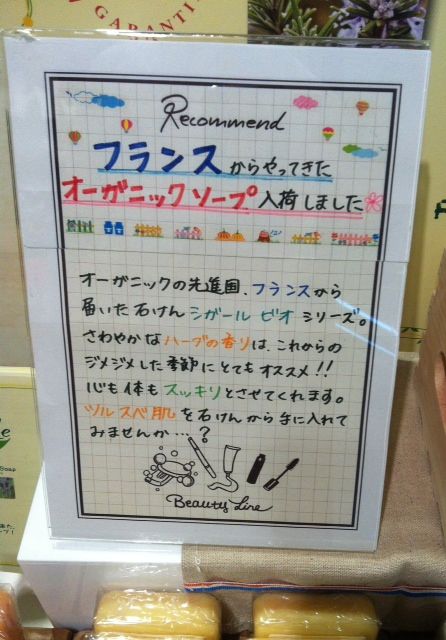 GARANTI
Recommend
フランスからやってきた
オーガニックソープ入荷しました
オーガニックの先進国、フランスから
届いた石けん シガール ビオ シリーズ。
さわやかなハーブの香りは、これからの
ジメジメした季節にとてもオススメ!!
心も体もスッキリとさせてくれます。
ツルスベ肌を石けんから手に入れて
みませんか…?
Beauty Line